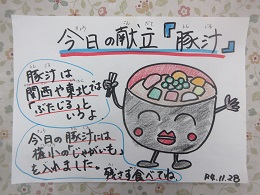 今日の献立『豚汁』
豚汁は
関西や東北では
「ぶたじる」と
いうよ
今日の豚汁には
植小の「じゃがいも」
を入れました。
残さず食べてね
R4.11.28